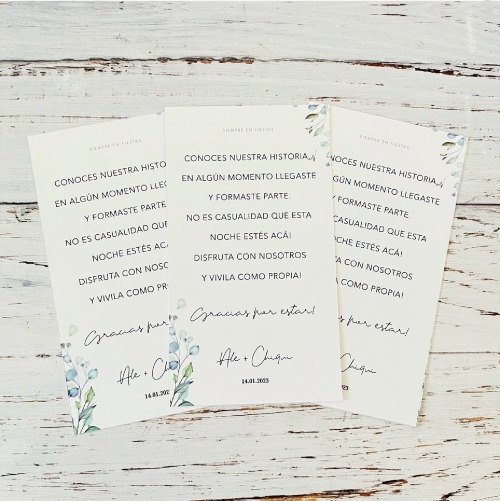 SIEMPRE EN FIESTAS
CONOCES NUESTRA HISTORIA
EN ALGÚN MOMENTO LLEGASTE
Y FORMASTE PARTE.
NO ES CASUALIDAD QUE ESTA
NOCHE ESTÉS ACÁ!
DISFRUTA CON NOSOTROS
Y VIVILA COMO PROPIA!
Gracias por
Ale + Chiqui
14.01.202
SIEMPRE EN FIESTAS
CONOCES NUESTRA HISTORIA,
EN ALGÚN MOMENTO LLEGASTE
Y FORMASTE PARTE.
NO ES CASUALIDAD QUE ESTA
NOCHE ESTÉS ACÁ!
DISFRUTA CON NOSOTROS
Y VIVILA COMO PROPIA!
Gracias por estar!
Ale + Chiqui
14.01.2023
SIEMPRE EN FIESTAS
NOCES NUESTRA HISTORIA,
ALGÚN MOMENTO LLEGASTE
Y FORMASTE PARTE.
CASUALIDAD QUE ESTA
NOCHE ESTÉS ACÁ!
DISFRUTA CON NOSOTROS
VIVILA COMO PROPIA!
por estar!
Chiqui
14.01.2023